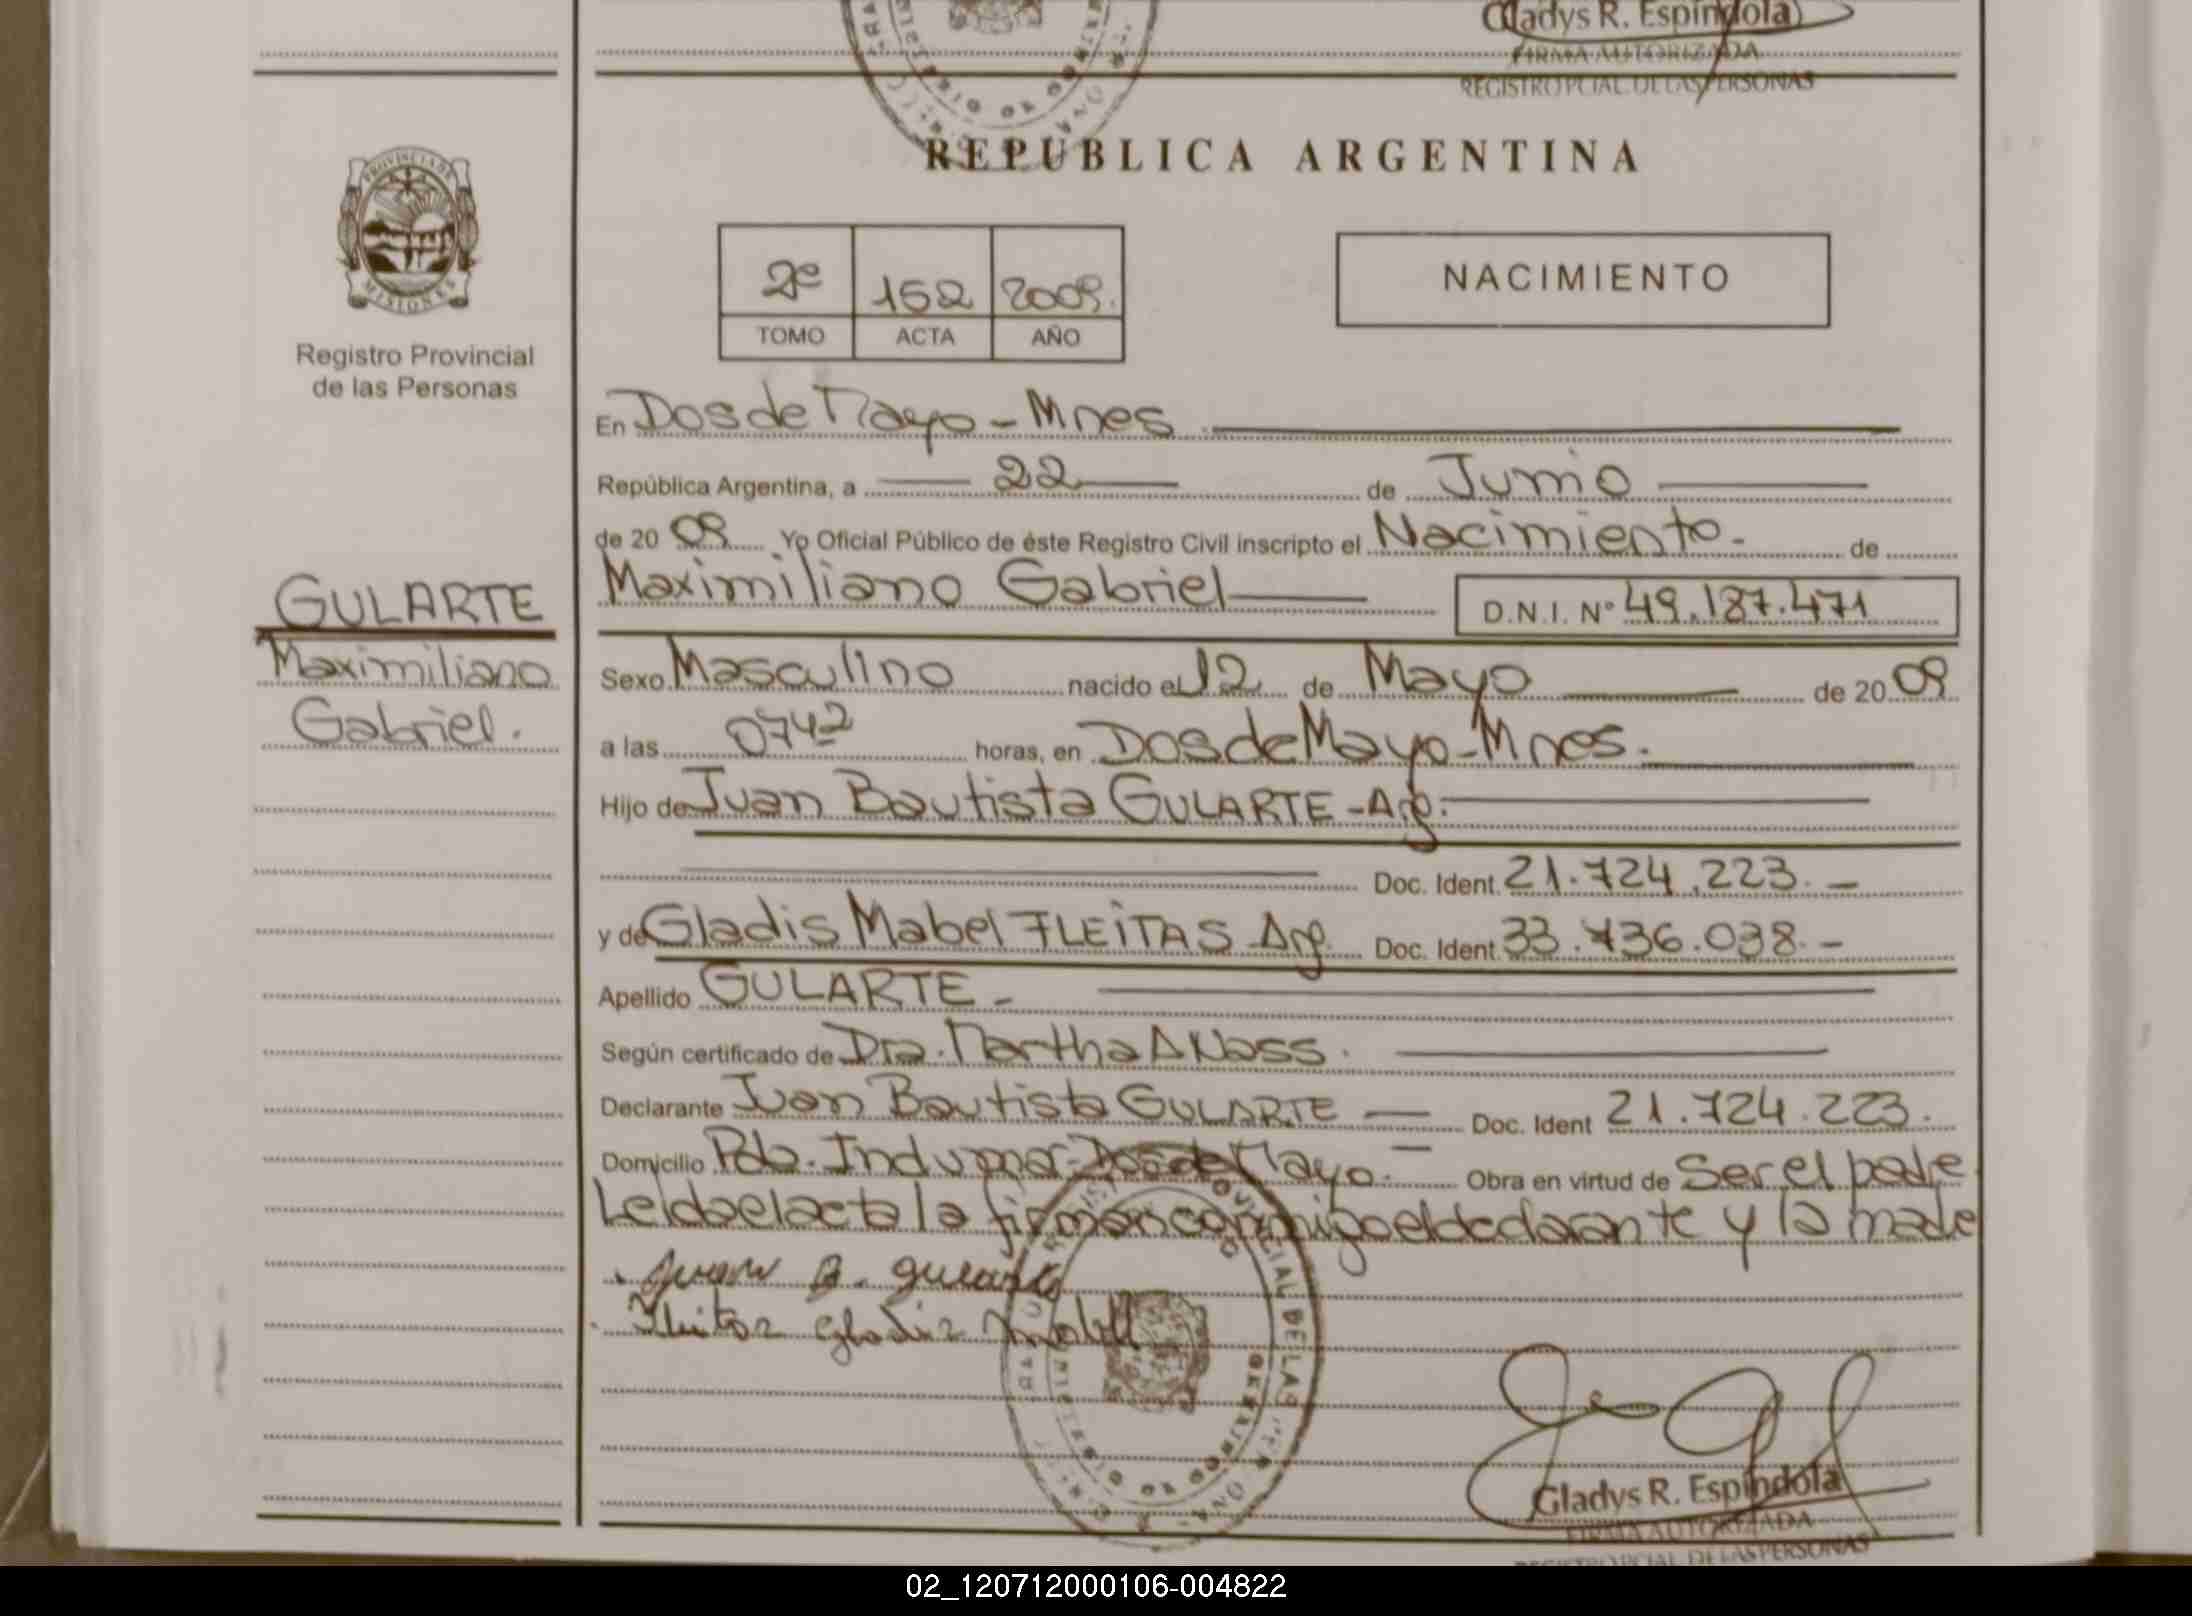 Gladys R. Espíndola
FIRMA AUTORIZADA
REGISTRO PCIAL. DE LAS PERSONAS
REPUBLICA ARGENTINA
PROVINCIA DE
MISIONES
Registro Provincial
de las Personas
2º 152 2009.
TOMO ACTA AÑO
NACIMIENTO
En Dos de Mayo - Mnes
República Argentina, a 22 de Junio
de 20 09 Yo Oficial Público de éste Registro Civil inscripto el Nacimiento - de
Maximiliano Gabriel D.N.I. Nº 49.187.471
GULARTE
Maximiliano
Gabriel.
Sexo Masculino nacido el 12 de Mayo de 20 09
a las 0742 horas, en Dos de Mayo - Mnes.
Hijo de Juan Bautista GULARTE - Arg.
Doc. Ident. 21.724.223. -
y de Gladis Mabel FLEITAS Arg. Doc. Ident. 33.736.038. -
Apellido GULARTE -
Según certificado de Dra. Martha A Nass.
Declarante Juan Bautista GULARTE Doc. Ident 21.724.223.
Domicilio Pdo. Indumar - Dos de Mayo. Obra en virtud de Ser el padre
Leida el acta la firman conmigo el declarante y la madre
Juan B. gularte
Fleitas gladis Mabell
Gladys R. Espíndola
FIRMA AUTORIZADA
REGISTRO PCIAL. DE LAS PERSONAS
02_120712000106-004822